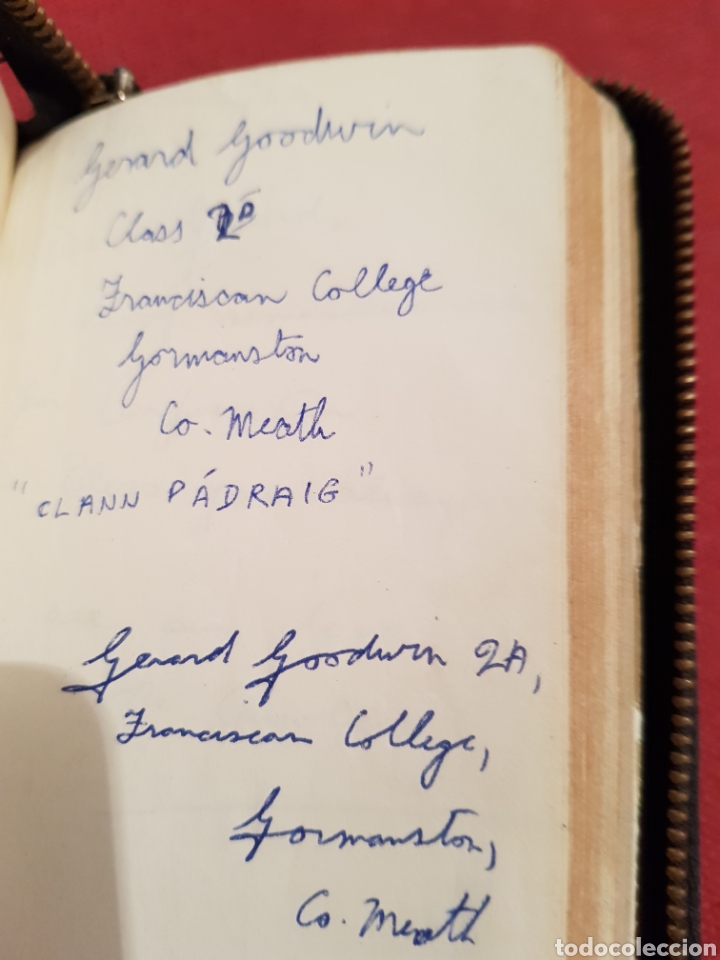 Gerard Goodwin
Class 2D
Franciscan College
Gormanston
Co. Meath
"CLANN PÁDRAIG"
Gerard Goodwin 2A,
Franciscan College,
Gormanston,
Co. Meath
todocoleccion